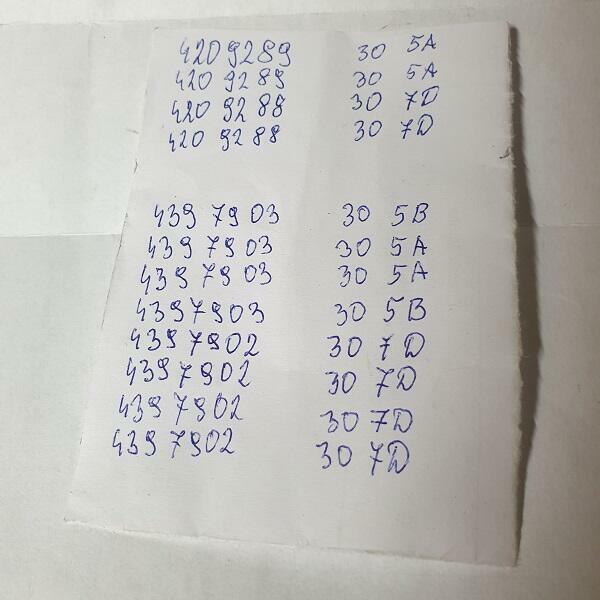 4209289 30 5A
420 9289 30 5A
420 9288 30 7D
420 9288 30 7D
439 79 03 30 5B
439 7903 30 5A
439 7903 30 5A
4397903 30 5B
439 7902 30 7D
439 7902 30 7D
439 7902 30 7D
439 7902 30 7D